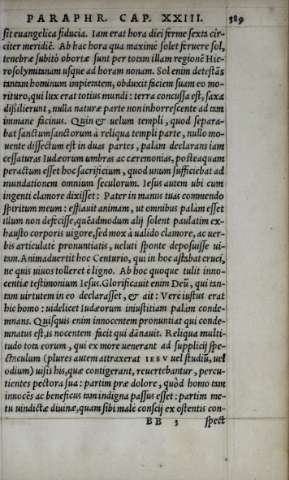 PARAPHR. CAP. XXIII. 389
sit euangelica fiducia. Iam erat hora diei ferme sexta cir-
citer meridiẽ. Ab hac hora qua maximè solet feruere sol,
tenebræ subitò obortæ sunt per totam illam regionẽ Hie-
rosolymitanam usque ad horam nonam. Sol enim detestãs
tantum hominum impietatem, obduxit faciem suam eo mo-
rituro, qui lux erat totius mundi: terra concussa est, saxa
dissilierunt, nulla naturæ parte non inhorrescente ad tam
immane facinus. Quin & uelum templi, quod separa-
bat sanctum sanctorum à reliqua templi parte, nullo mo-
uente dissectum est in duas partes, palam declarans iam
cessaturas Iudæorum umbras ac cæremonias, posteaquam
peractum esset hoc sacrificium, quod unum sufficiebat ad
mundationem omnium seculorum. Iesus autem ubi cum
ingenti clamore dixisset: Pater in manus tuas commendo
spiritum meum: efflauit animam, ut omnibus palam esset
illum non defecisse, quẽadmodum alij solent paulatim ex-
hausto corporis uigore, sed mox à ualido clamore, ac uer-
bis articulatè pronuntiatis, ueluti sponte deposuisse ui-
tam. Animaduertit hoc Centurio, qui in hoc astabat cruci,
ne quis uiuos tolleret è ligno. Ab hoc quoque tulit inno-
centiæ testimonium Iesus. Glorificauit enim Deũ, qui tan-
tam uirtutem in eo declarasset, & ait: Vere iustus erat
hic homo: uidelicet Iudæorum iniustitiam palàm conde-
mnans. Quisquis enim innocentem pronuntiat qui conde-
mnatus est, is nocentem facit qui dãnauit. Reliqua multi-
tudo tota eorum, qui ex more uenerant ad supplicij spe-
ctaculum (plures autem attraxerat IESV uel studiũ, uel
odium) uisis his, quæ contigerant, reuertebantur, percu-
tientes pectora sua: partim præ dolore, quòd homo tam
innocẽs ac beneficus tam indigna passus esset: partim me-
tu uindictæ diuinæ, quam sibi malè conscij ex ostentis con-
BB 3 spect